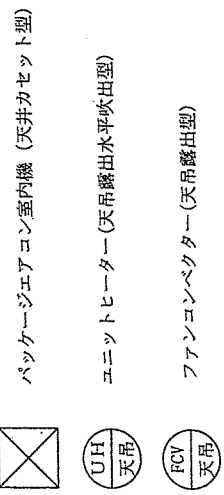 パッケージエアコン室内機 (天井カセット型)
UH
天吊
ユニットヒーター(天吊露出水平吹出型)
FCV
天吊
ファンコンベクター(天吊露出型)